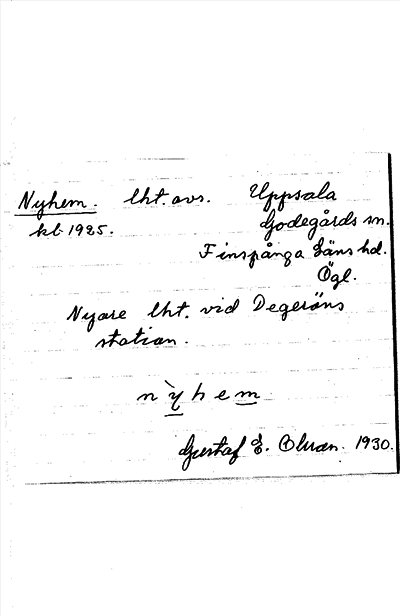 Nyhem. lht. avs. Uppsala
kb 1925. Godegårds sn.
Finspånga läns hd.
Ögl.
Nyare lht. vid Degeröns
station.
nỳhem
Gustaf E. Olsson. 1930.